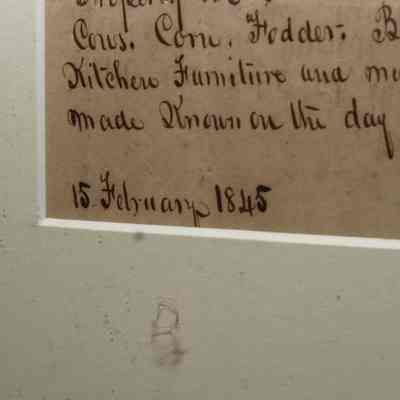 Cows. Corn. Fodder. B
Kitchen Furniture and m
made Known on the day
15 February 1845